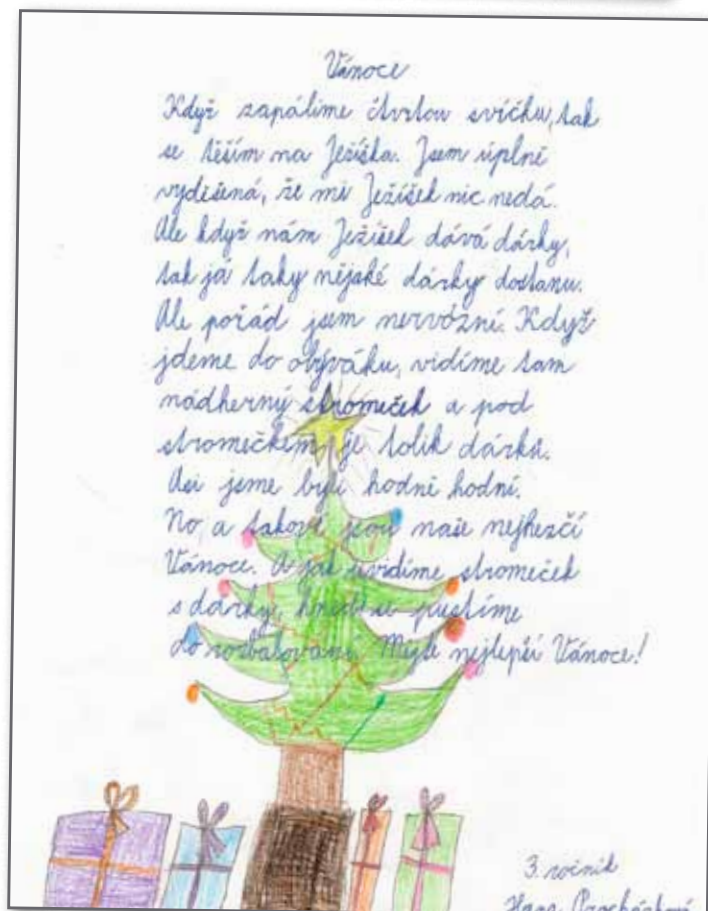 Vánoce
Když zapálíme čtvrtou svíčku, tak
se těším na Ježíška. Jsem úplně
vyděšená, že mi Ježíšek nic nedá.
Ale když nám Ježíšek dává dárky,
tak já taky nějaké dárky dostanu.
Ale pořád jsem nervózní. Když
jdeme do obýváku, vidíme tam
nádherný stromeček a pod
stromečkem je tolik dárků.
Asi jsme byli hodně hodní.
No, a takové jsou naše nejhezčí
Vánoce. A jak uvidíme stromeček
s dárky, hned se pustíme
do rozbalování. Mějte nejlepší Vánoce!
3. ročník
Hana Procházková